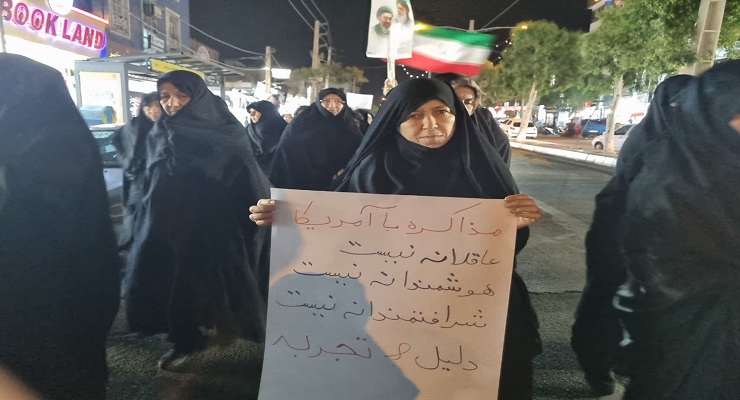 BOOK LAND
مذاکره با آمریکا
عاقلانه نیست
هوشمندانه نیست
شرافتمندانه نیست
دلیل ؟ تجربه